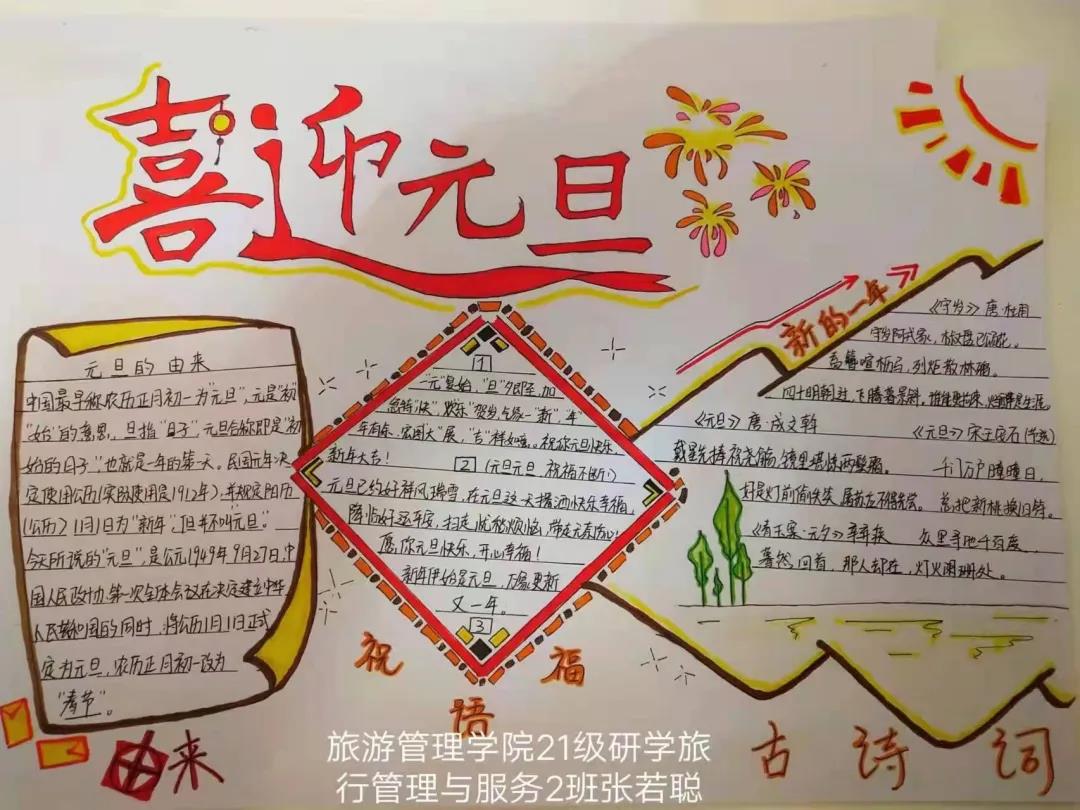 喜迎元旦
元旦的由来
中国最早称农历正月初一为“元旦”，元是“初”
“始”的意思，旦指“日子”元旦合称即是“初
始的日子”也就是一年的第一天。民国元年决
定使用公历（实际使用是1912年），并规定阳历
（公历）1月1日为“新年”，但并不叫“元旦”。
今天所说的“元旦”，是公元1949年9月27日，中
国人民政协第一次全体会议在决定建立中华
人民共和国的同时，将公历1月1日正式
定为元旦，农历正月初一改为
“春节”。
由来
1
“元”复始，“旦”夕即至，加
年有余，宏图大“展”，“吉”祥如意。祝你元旦快乐，
新年大吉！
2 （元旦元旦，祝福不断！）
元旦已约好祥风瑞雪，在元旦这一天播洒快乐幸福，
降临好运平安，扫走忧愁烦恼，
愿你元旦快乐，开心幸福！
新年伊始是元旦，万象更新
又一年。
3
祝
福
语
新的一年
《守岁》唐·杜甫
守岁阿戎家，椒盘已颂花。
盍簪喧枥马，列炬散林鸦。
四十明朝过，飞腾暮景斜，
《元旦》唐·成文斡
《元旦》宋王安石（节选）
戴星先捧祝尧觞，镜里堪惊两鬓霜。
千门万户曈曈日，
好是灯前偷失笑，屠苏应不得先尝。
总把新桃换旧符。
《青玉案·元夕》辛弃疾
众里寻他千百度，
蓦然回首，那人却在，灯火阑珊处。
古诗词
旅游管理学院21级研学旅
行管理与服务2班张若聪